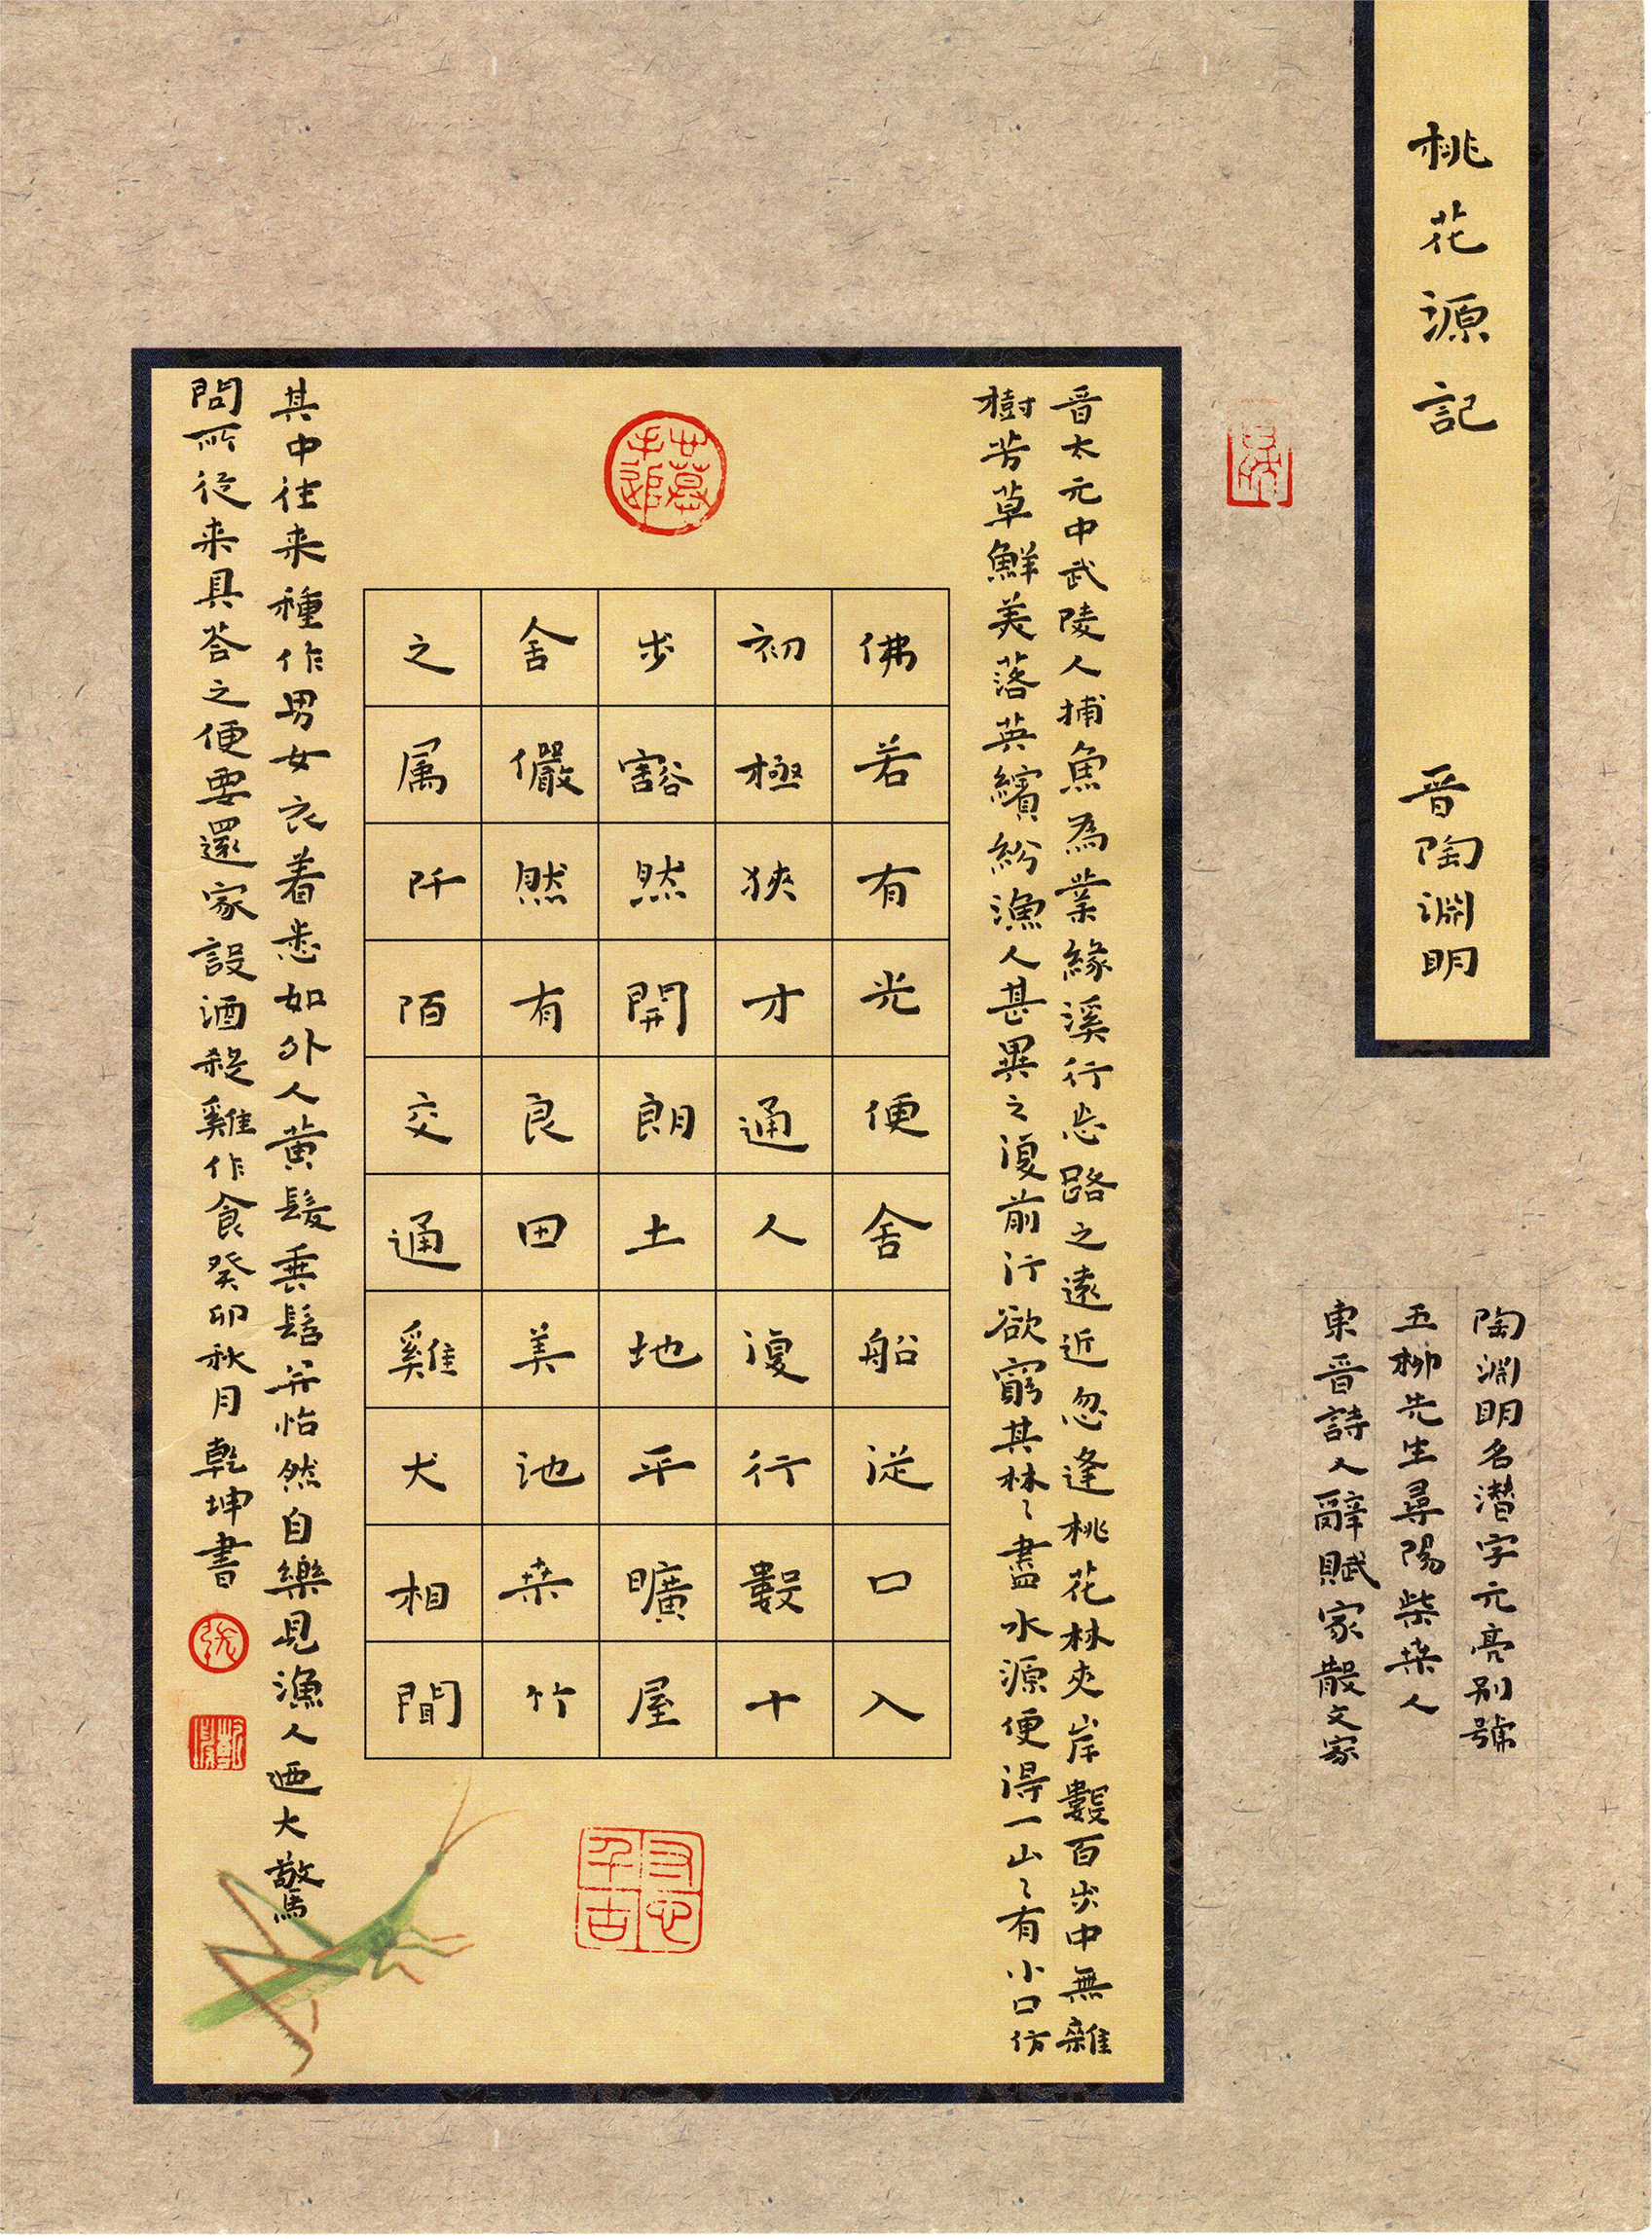 桃花源記 晋陶淵明
陶淵明名潛字元亮别號
五柳先生尋陽柴桑人
東晋詩人辭賦家散文家
晋太元中武陵人捕魚為業緣溪行忘路之遠近忽逢桃花林夾岸數百步中無雜
樹芳草鮮美落英繽紛漁人甚異之復前行欲窮其林〻盡水源便得一山〻有小口仿
佛若有光便舍船從口入
初極狹才通人復行數十
步豁然開朗土地平曠屋
舍儼然有良田美池桑竹
之属阡陌交通雞犬相聞
其中往来種作男女衣着悉如外人黄髮垂髫并怡然自樂見漁人迺大驚
問所從来具荅之便要還家設酒殺雞作食癸卯秋月乾坤書
張
有心千古